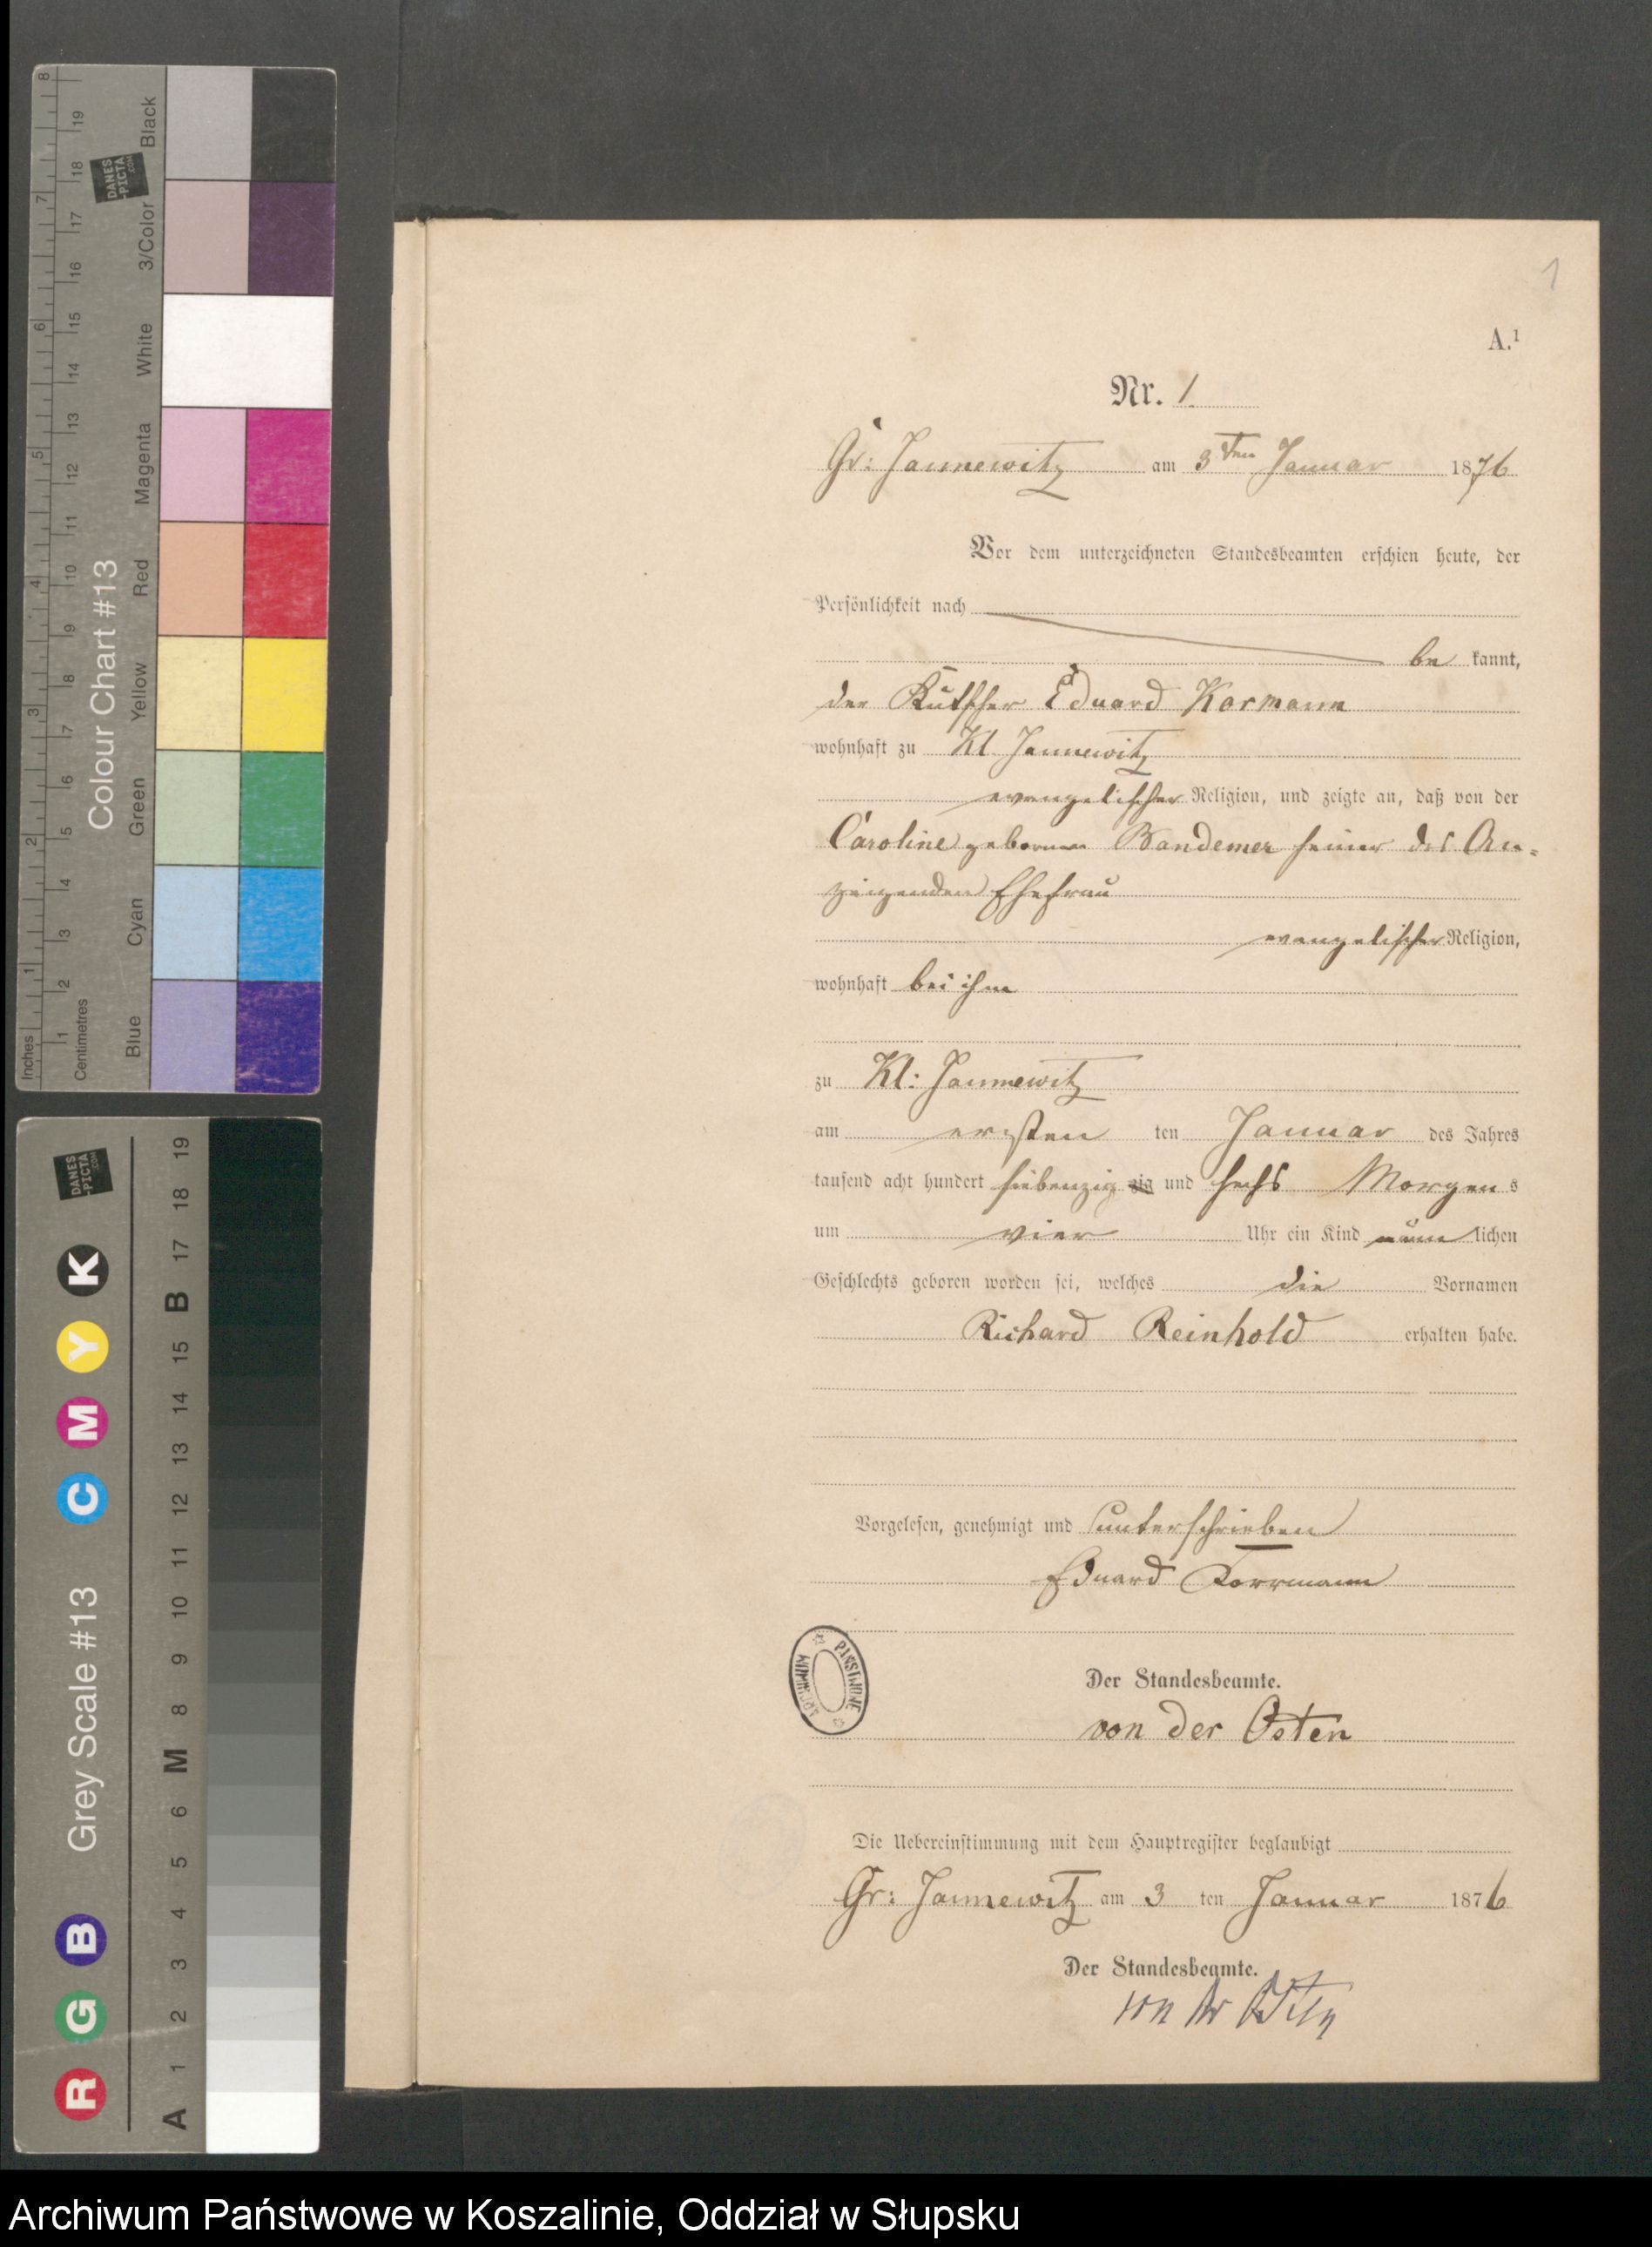 1
A.¹
Nr. 1.
Gr: Jannewitz am 3ten Januar 1876
Vor dem unterzeichneten Standesbeamten erschien heute, der
Persönlichkeit nach
be kannt,
der Kutscher Eduard Karmann
wohnhaft zu Kl. Jannewitz
evangelischer Religion, und zeigte an, daß von der
Caroline geborenen Bandemer seiner des An=
zeigenden Ehefrau
evangelischer Religion,
wohnhaft bei ihm
zu Kl: Jannewitz
am ersten ten Januar des Jahres
tausend acht hundert siebenzig zig und sechs Morgens
um vier Uhr ein Kind männlichen
Geschlechts geboren worden sei, welches die Vornamen
Richard Reinhold erhalten habe.
Vorgelesen, genehmigt und unterschrieben
Eduard Korrmann
Der Standesbeamte.
von der Osten
Die Uebereinstimmung mit dem Hauptregister beglaubigt
Gr: Jannewitz am 3 ten Januar 1876
Der Standesbeamte.
von der Osten
PAŃSTWOWE
Inches 1 2 3 4 5 6 7 8
Centimetres 1 2 3 4 5 6 7 8 9 10 11 12 13 14 15 16 17 18 19
Colour Chart #13
DANES
-PICTA
.COM
Blue Cyan Green Yellow Red Magenta White 3/Color Black
Grey Scale #13
R G B C M Y K
DANES
-PICTA
.COM
A 1 2 3 4 5 6 M 8 9 10 11 12 13 14 15 B 17 18 19
Archiwum Państwowe w Koszalinie, Oddział w Słupsku